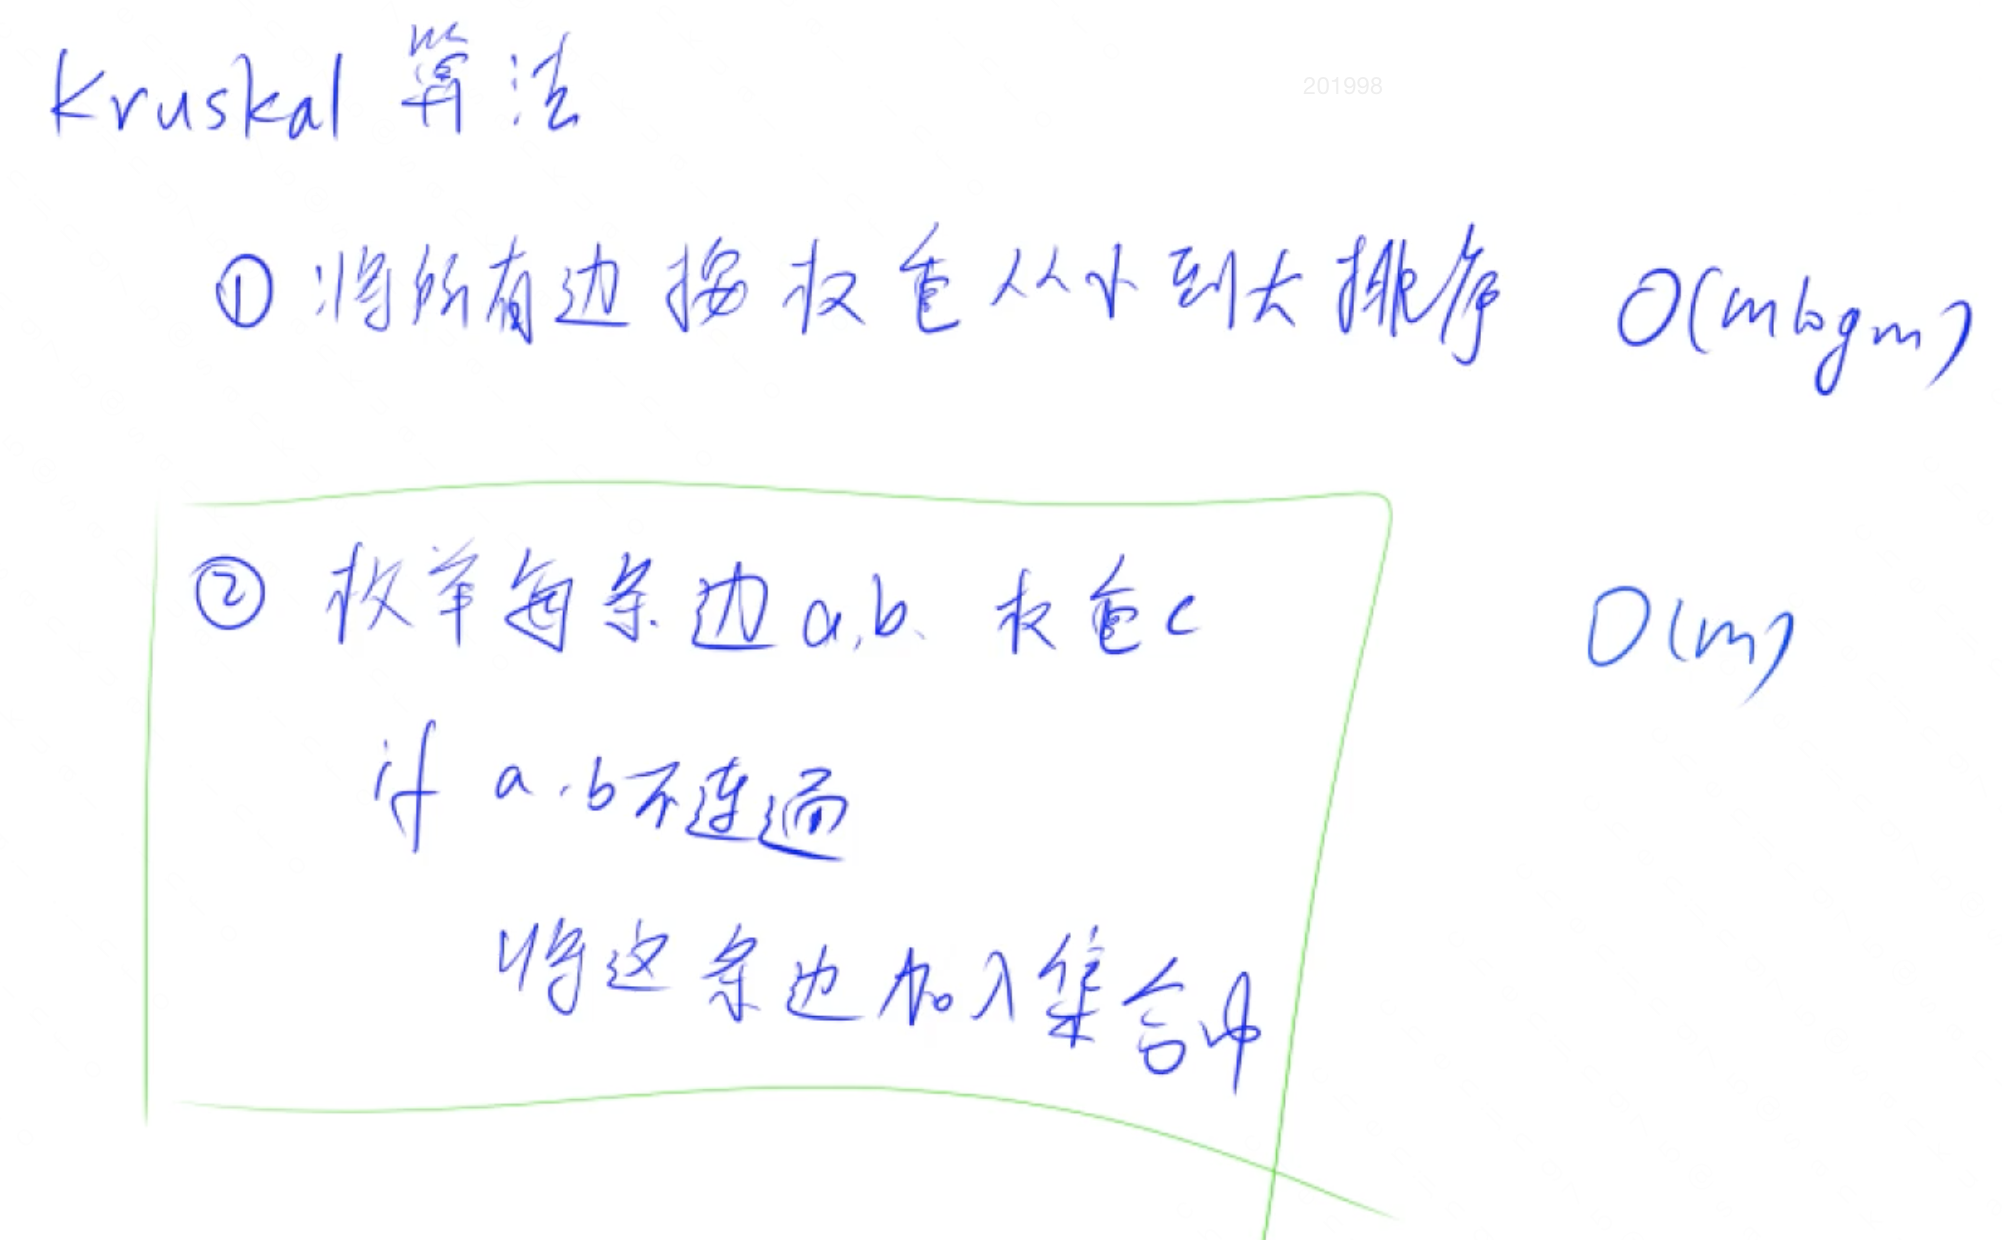 Kruskal 算法
201998
① 将所有边按权重从小到大排序 O(mlogm)
② 枚举每条边a,b、权重c O(m)
if a,b不连通
将这条边加入集合中